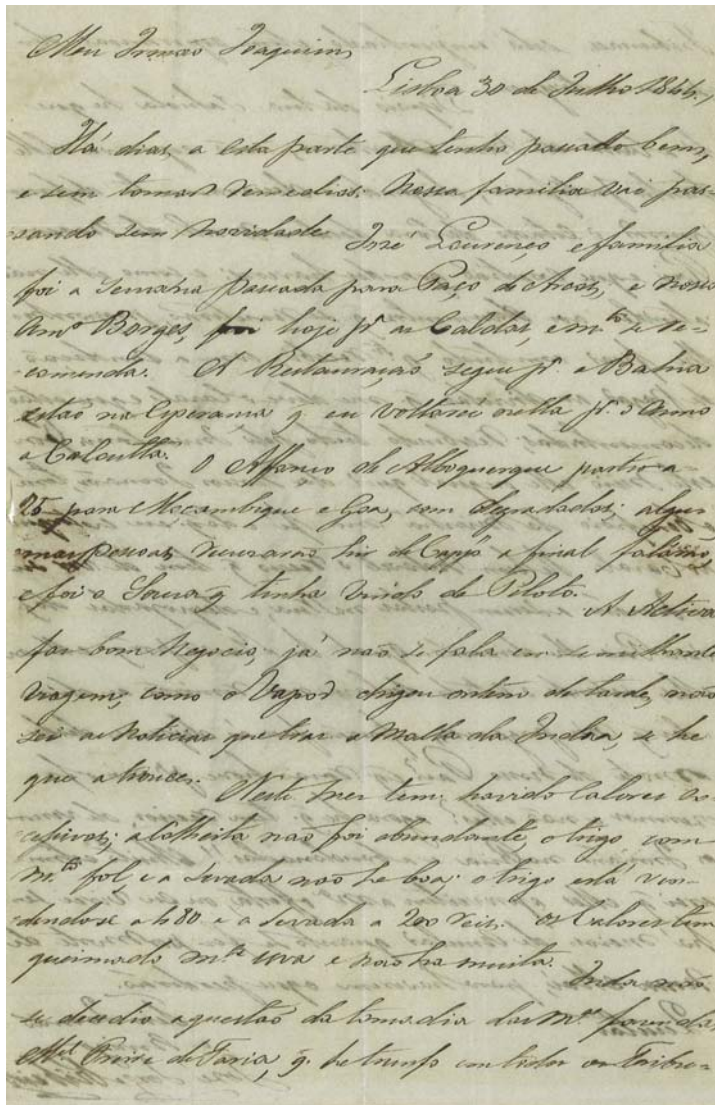 Meu Irmão Joaquim
Lisboa 30 de Julho 1844,
Há dias, a esta parte que tenho passado bem,
e sem tomar remedios. Nossa familia vai pas-
sando sem novidade. José Lourenço e familia
foi a semana passada para Paço de Arcos, e nosso
Amº Borges, foi hoje pª as Caldas, e m.to se re-
comenda. A Restauração segue pª a Bahia
estão na esperança q eu voltarei nella pª o anno
a Calcutta. O Affonso de Alboquerque partio a
25 para Moçambique e Goa, com degradados; algu-
mas pessoas recusarão hir de Capp a final
e foi o Sousa q tinha vindo de Piloto. A Activa
fas bom negocio, já não se fala em semilhante
viagem, como o Vapor chegou ontem de tarde, não
sei as noticias que tras a Malla da India, se he
que a trouce. Neste mes tem havido Calores
a Colheita não foi abundante, o trigo com
m.to e a sevada não he boa; o trigo está ven-
dendose a 480 e a sevada a 200 reis. Os Calores tem
queimado m.ta uva e não ha muita. Inda não
se decedio a questão da tomadia das fazenda
Mel Freire de Faria, q